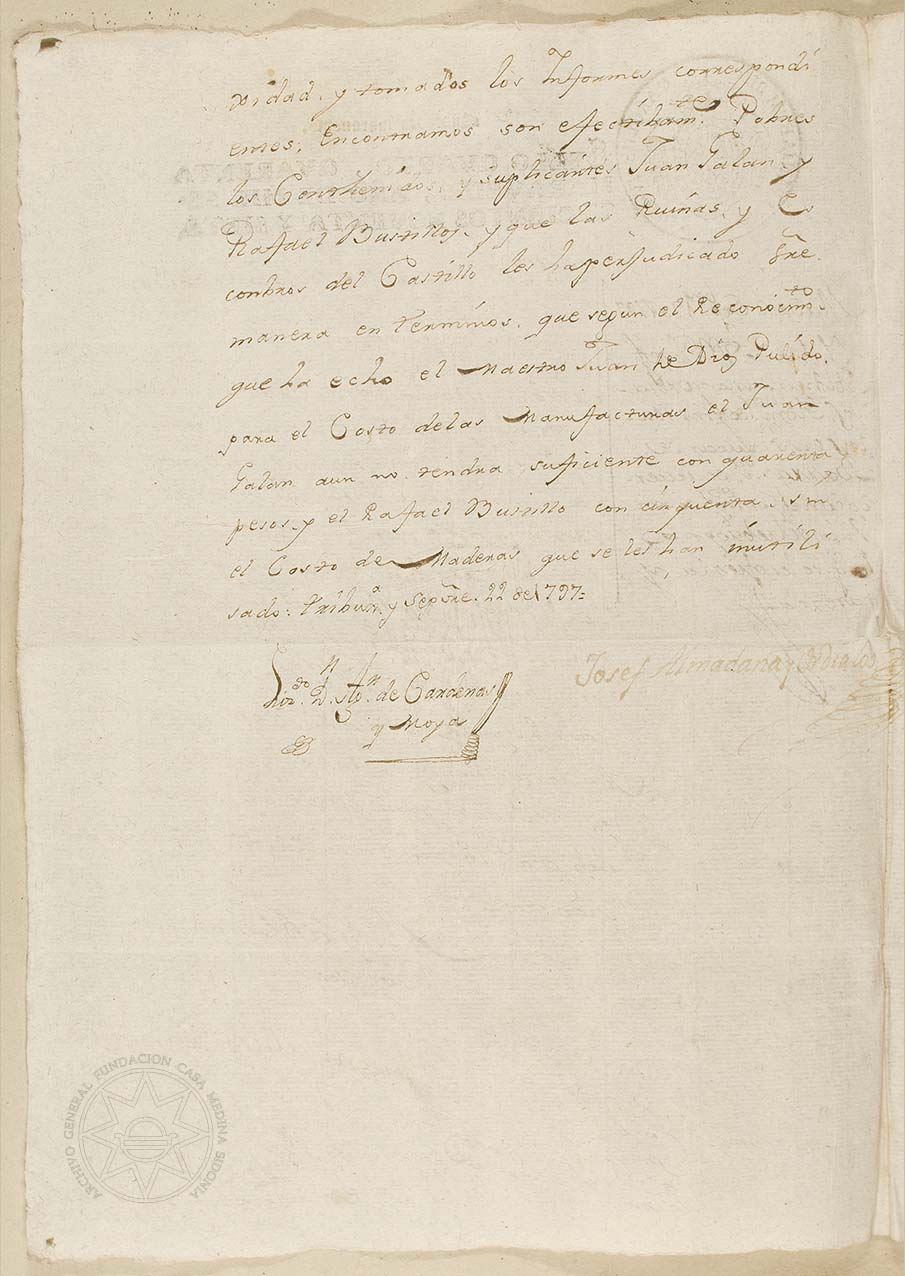 xidad, y tomados los Informes correspondi
entes, Encontramos son efectibam.te Pobres
los Conthenidos, y suplicantes Juan Galan y
Rafael Bustillos, y que las Ruinas, y Es
conbros del Castillo les ha perjudicado
manera en terminos, que segun el Reconocim.to
que ha echo el Maestro Juan de Dios Pulido,
para el Costo de las Manufacturas el Juan
Galan aun no tendra suficiente con quarenta
pesos, y el Rafael Bustillo con cinquenta, sin
el Costo de Maderas que se les han inutili
sado: Tribux.a y Sepbre. 22 de 1797=
Liz.do D.n An.n de Cardenas
y Moya
Josef Almadana y
ARCHIVO GENERAL FUNDACION CASA MEDINA SIDONIA